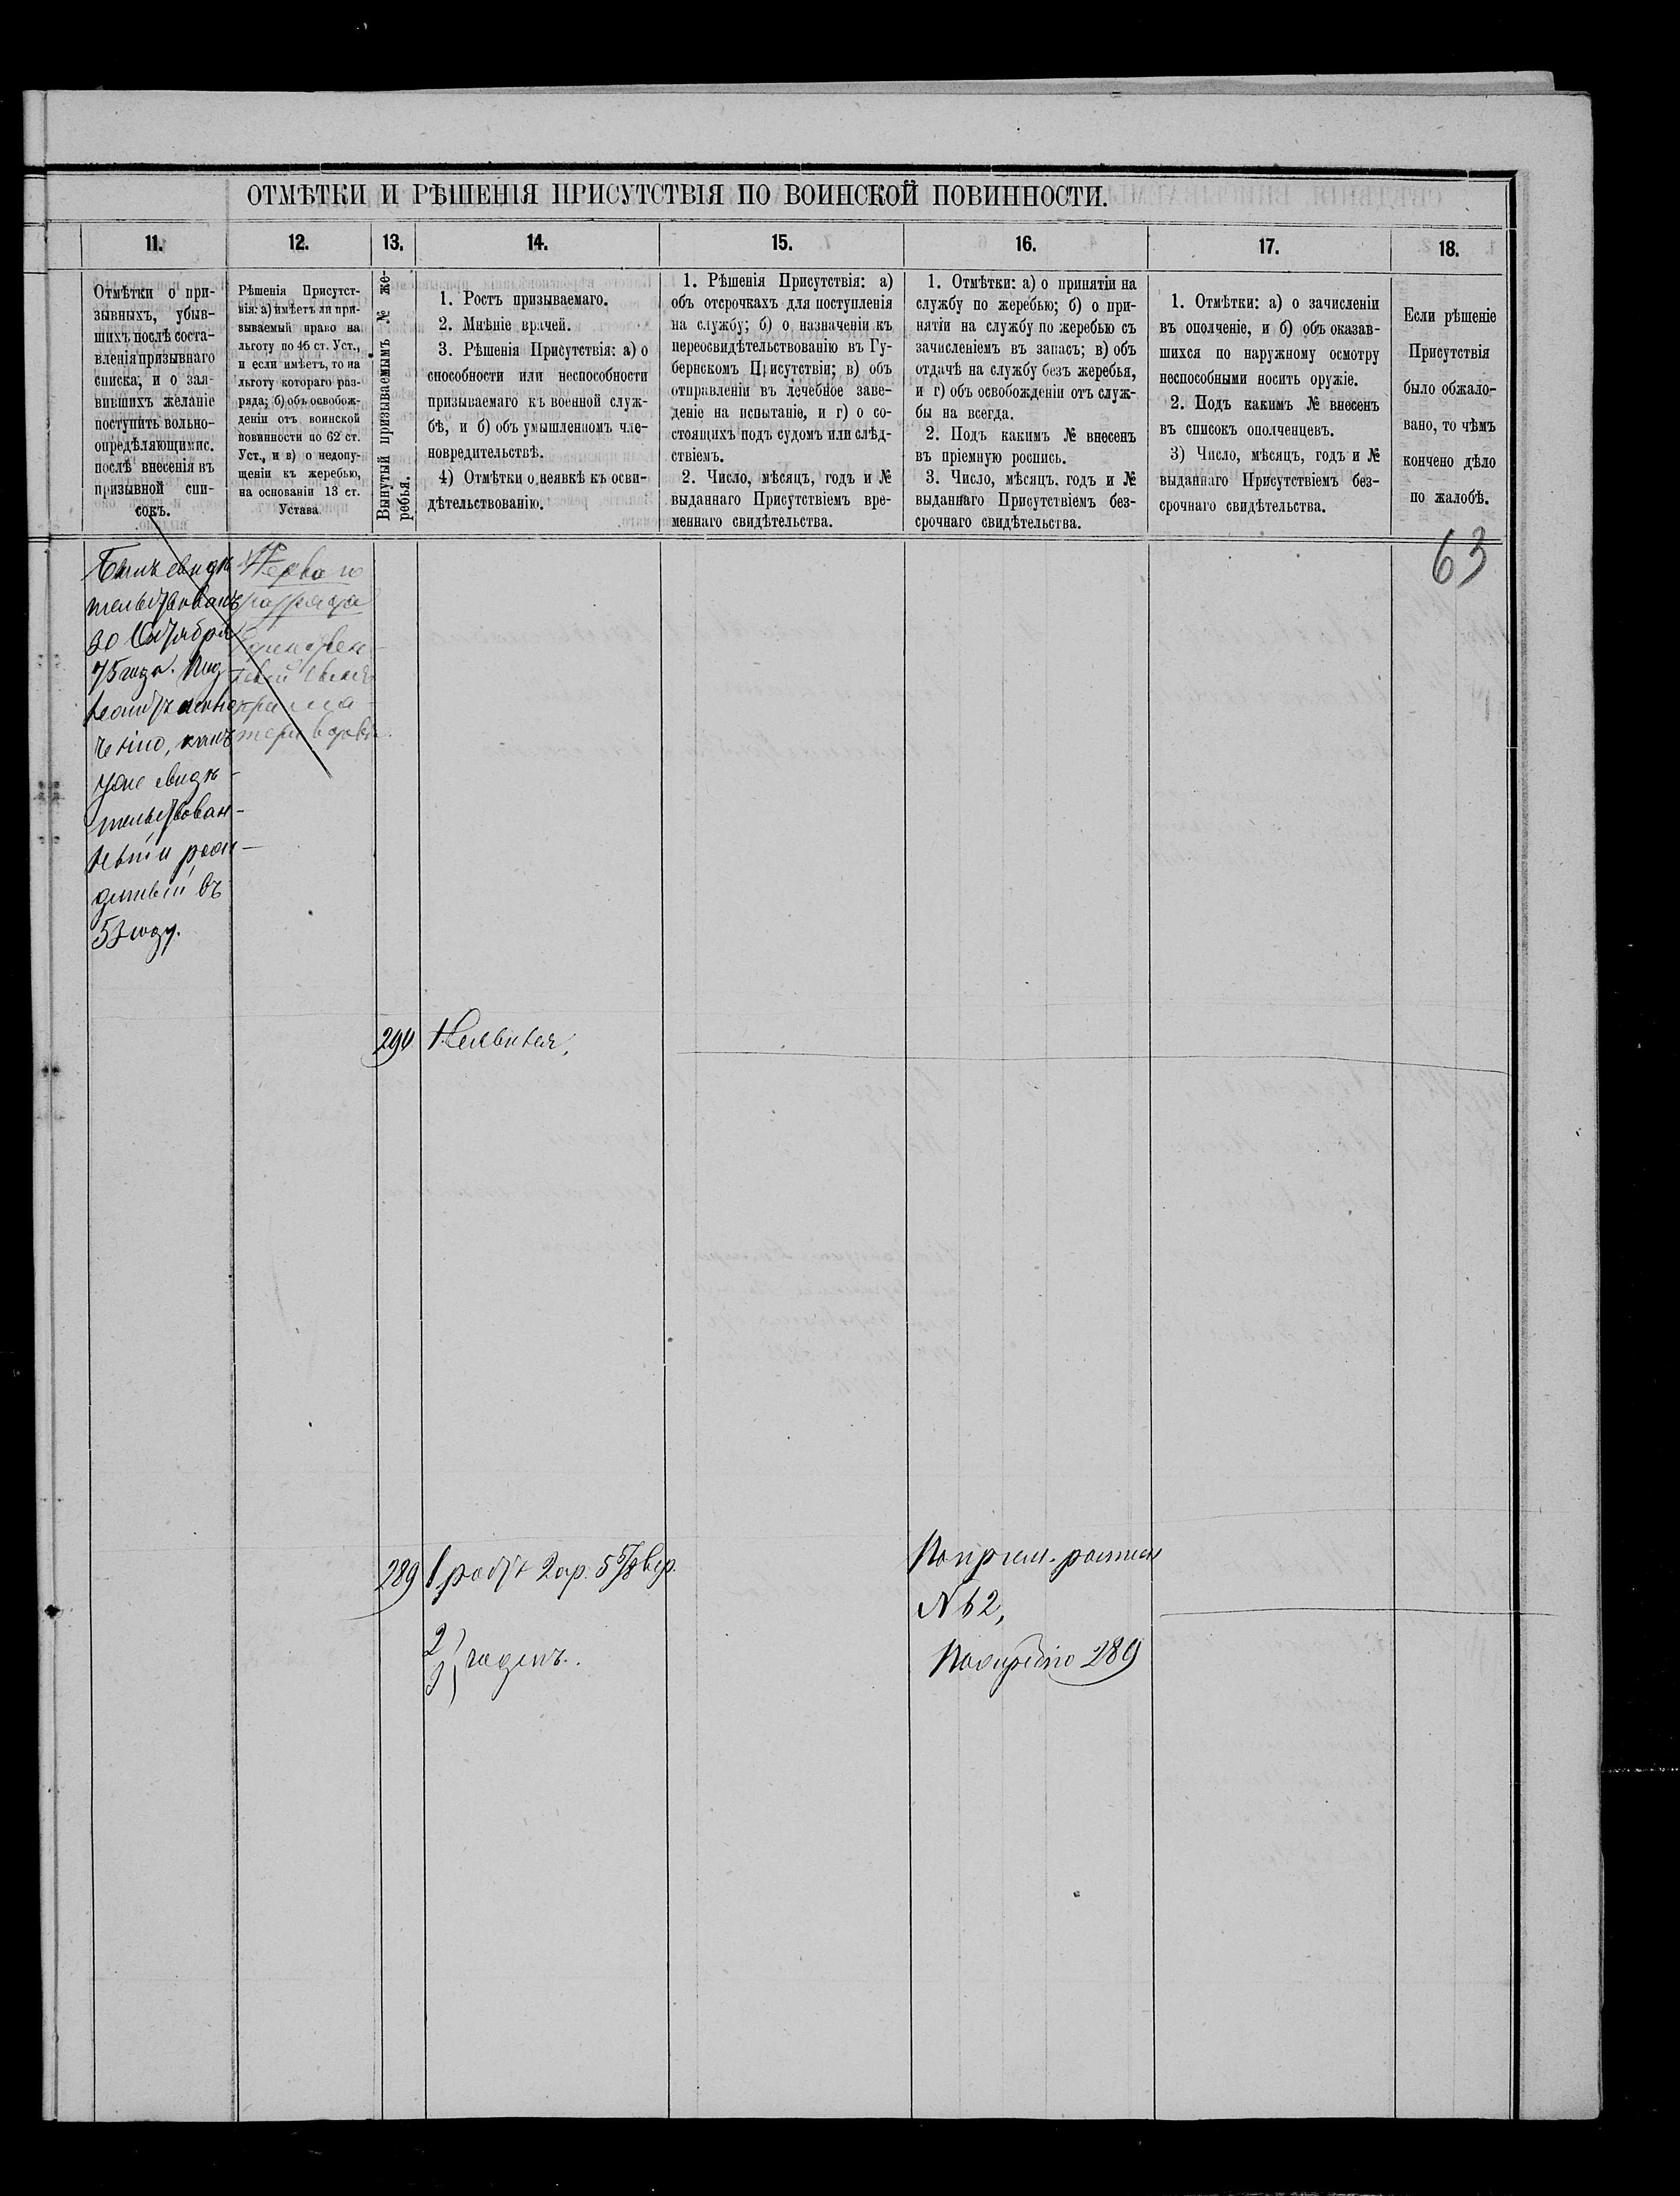 ОТМѢТКИ И РѢШЕНІЯ ПРИСУТСТВІЯ ПО ВОИНСКОЙ ПОВИННОСТИ.
11.
Отмѣтки о при-
зывныхъ, убыв-
шихъ послѣ соста-
вленія призывнаго
списка, и о зая-
вившихъ желаніе
поступить вольно-
опредѣляющимис.
послѣ внесенія въ
призывной спи-
сокъ.
12.
Рѣшенія Присутст-
вія: а) имѣетъ ли при-
зываемый право на
льготу по 46 ст. Уст.,
и если имѣетъ, то на
льготу котораго раз-
ряда; б) объ освобож-
деніи отъ воинской
повинности по 62 ст.
Уст., и в) о недопу-
щеніи къ жеребью,
на основаніи 13 ст.
Устава
13.
Вынутый призываемымъ № же-
ребья.
14.
1. Ростъ призываемаго.
2. Мнѣніе врачей.
3. Рѣшенія Присутствія: а) о
способности или неспособности
призываемаго къ военной служ-
бѣ, и б) объ умышленномъ чле-
новредительствѣ.
4) Отмѣтки о неявкѣ къ осви-
дѣтельствованію.
15.
1. Рѣшенія Присутствія: а)
объ отсрочкахъ для поступленія
на службу; б) о назначеніи къ
переосвидѣтельствованію въ Гу-
бернскомъ Присутствіи; в) объ
отправленіи въ лечебное заве-
деніе на испытаніе, и г) о со-
стоящихъ подъ судомъ или слѣд-
ствіемъ.
2. Число, мѣсяцъ, годъ и №
выданнаго Присутствіемъ вре-
меннаго свидѣтельства.
16.
1. Отмѣтки: а) о принятіи на
службу по жеребью; б) о при-
нятіи на службу по жеребью съ
зачисленіемъ въ запасъ; в) объ
отдачѣ на службу безъ жеребья,
и г) объ освобожденіи отъ служ-
бы на всегда.
2. Подъ какимъ № внесенъ
въ пріемную роспись.
3. Число, мѣсяцъ, годъ и №
выданнаго Присутствіемъ без-
срочнаго свидѣтельства.
17.
1. Отмѣтки: а) о зачисленіи
въ ополченіе, и б) объ оказав-
шихся по наружному осмотру
неспособными носить оружіе.
2. Подъ какимъ № внесенъ
въ списокъ ополченцевъ.
3) Число, мѣсяцъ, годъ и №
выданнаго Присутствіемъ без-
срочнаго свидѣтельства.
18.
Если рѣшеніе
Присутствія
было обжало-
вано, то чѣмъ
кончено дѣло
по жалобѣ.
63
Былъ свидѣ
тельствованъ
30 Октября
75 года. Под
ченію, какъ
уже свидѣ-
тельствован-
ный рож-
денный въ
53 году.
Перваго
разряда
Единствен-
ный сынъ
при ма-
тери вдовѣ.
290
Неявился,
289
1 ростъ 2 ар. 5 5/8 вер.
2
3
годенъ.
По прием. росписи
№ 62,
По жеребію 289